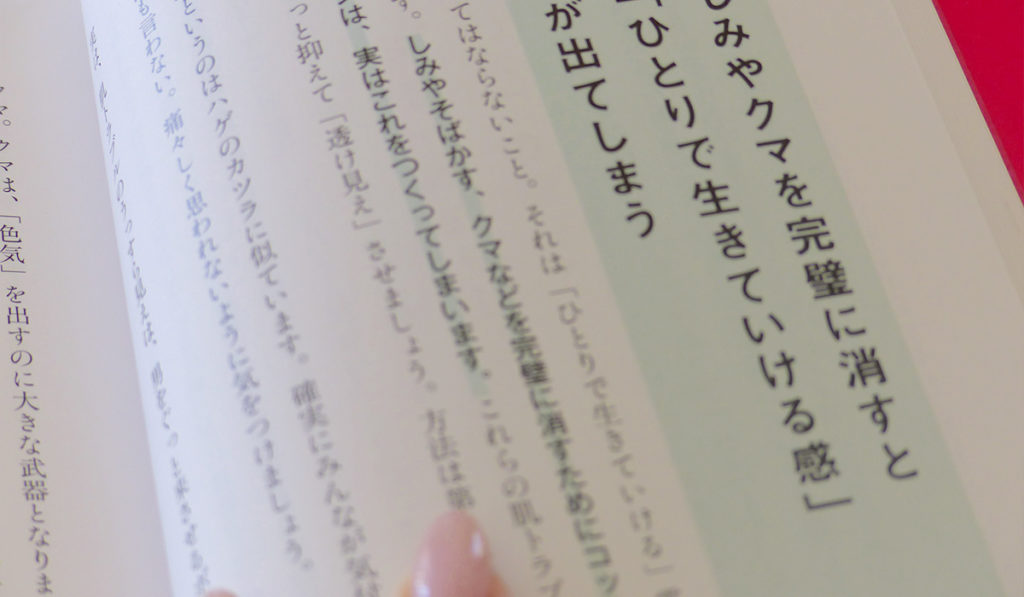 みやクマを完璧に消すと
「ひとりで生きていける感」
が出てしまう
てはならないこと。それは「ひとりで生きていける」
す。しみやそばかす、クマなどを完璧に消すためにコッ
は、実はこれをつくってしまいます。これらの肌トラブ
っと抑えて「透け見え」させましょう。方法は第
というのはハゲのカツラに似ています。確実にみんなが気
も言わない。痛々しく思われないように気をつけましょう。
クマは、「色気」を出すのに大きな武器となりま